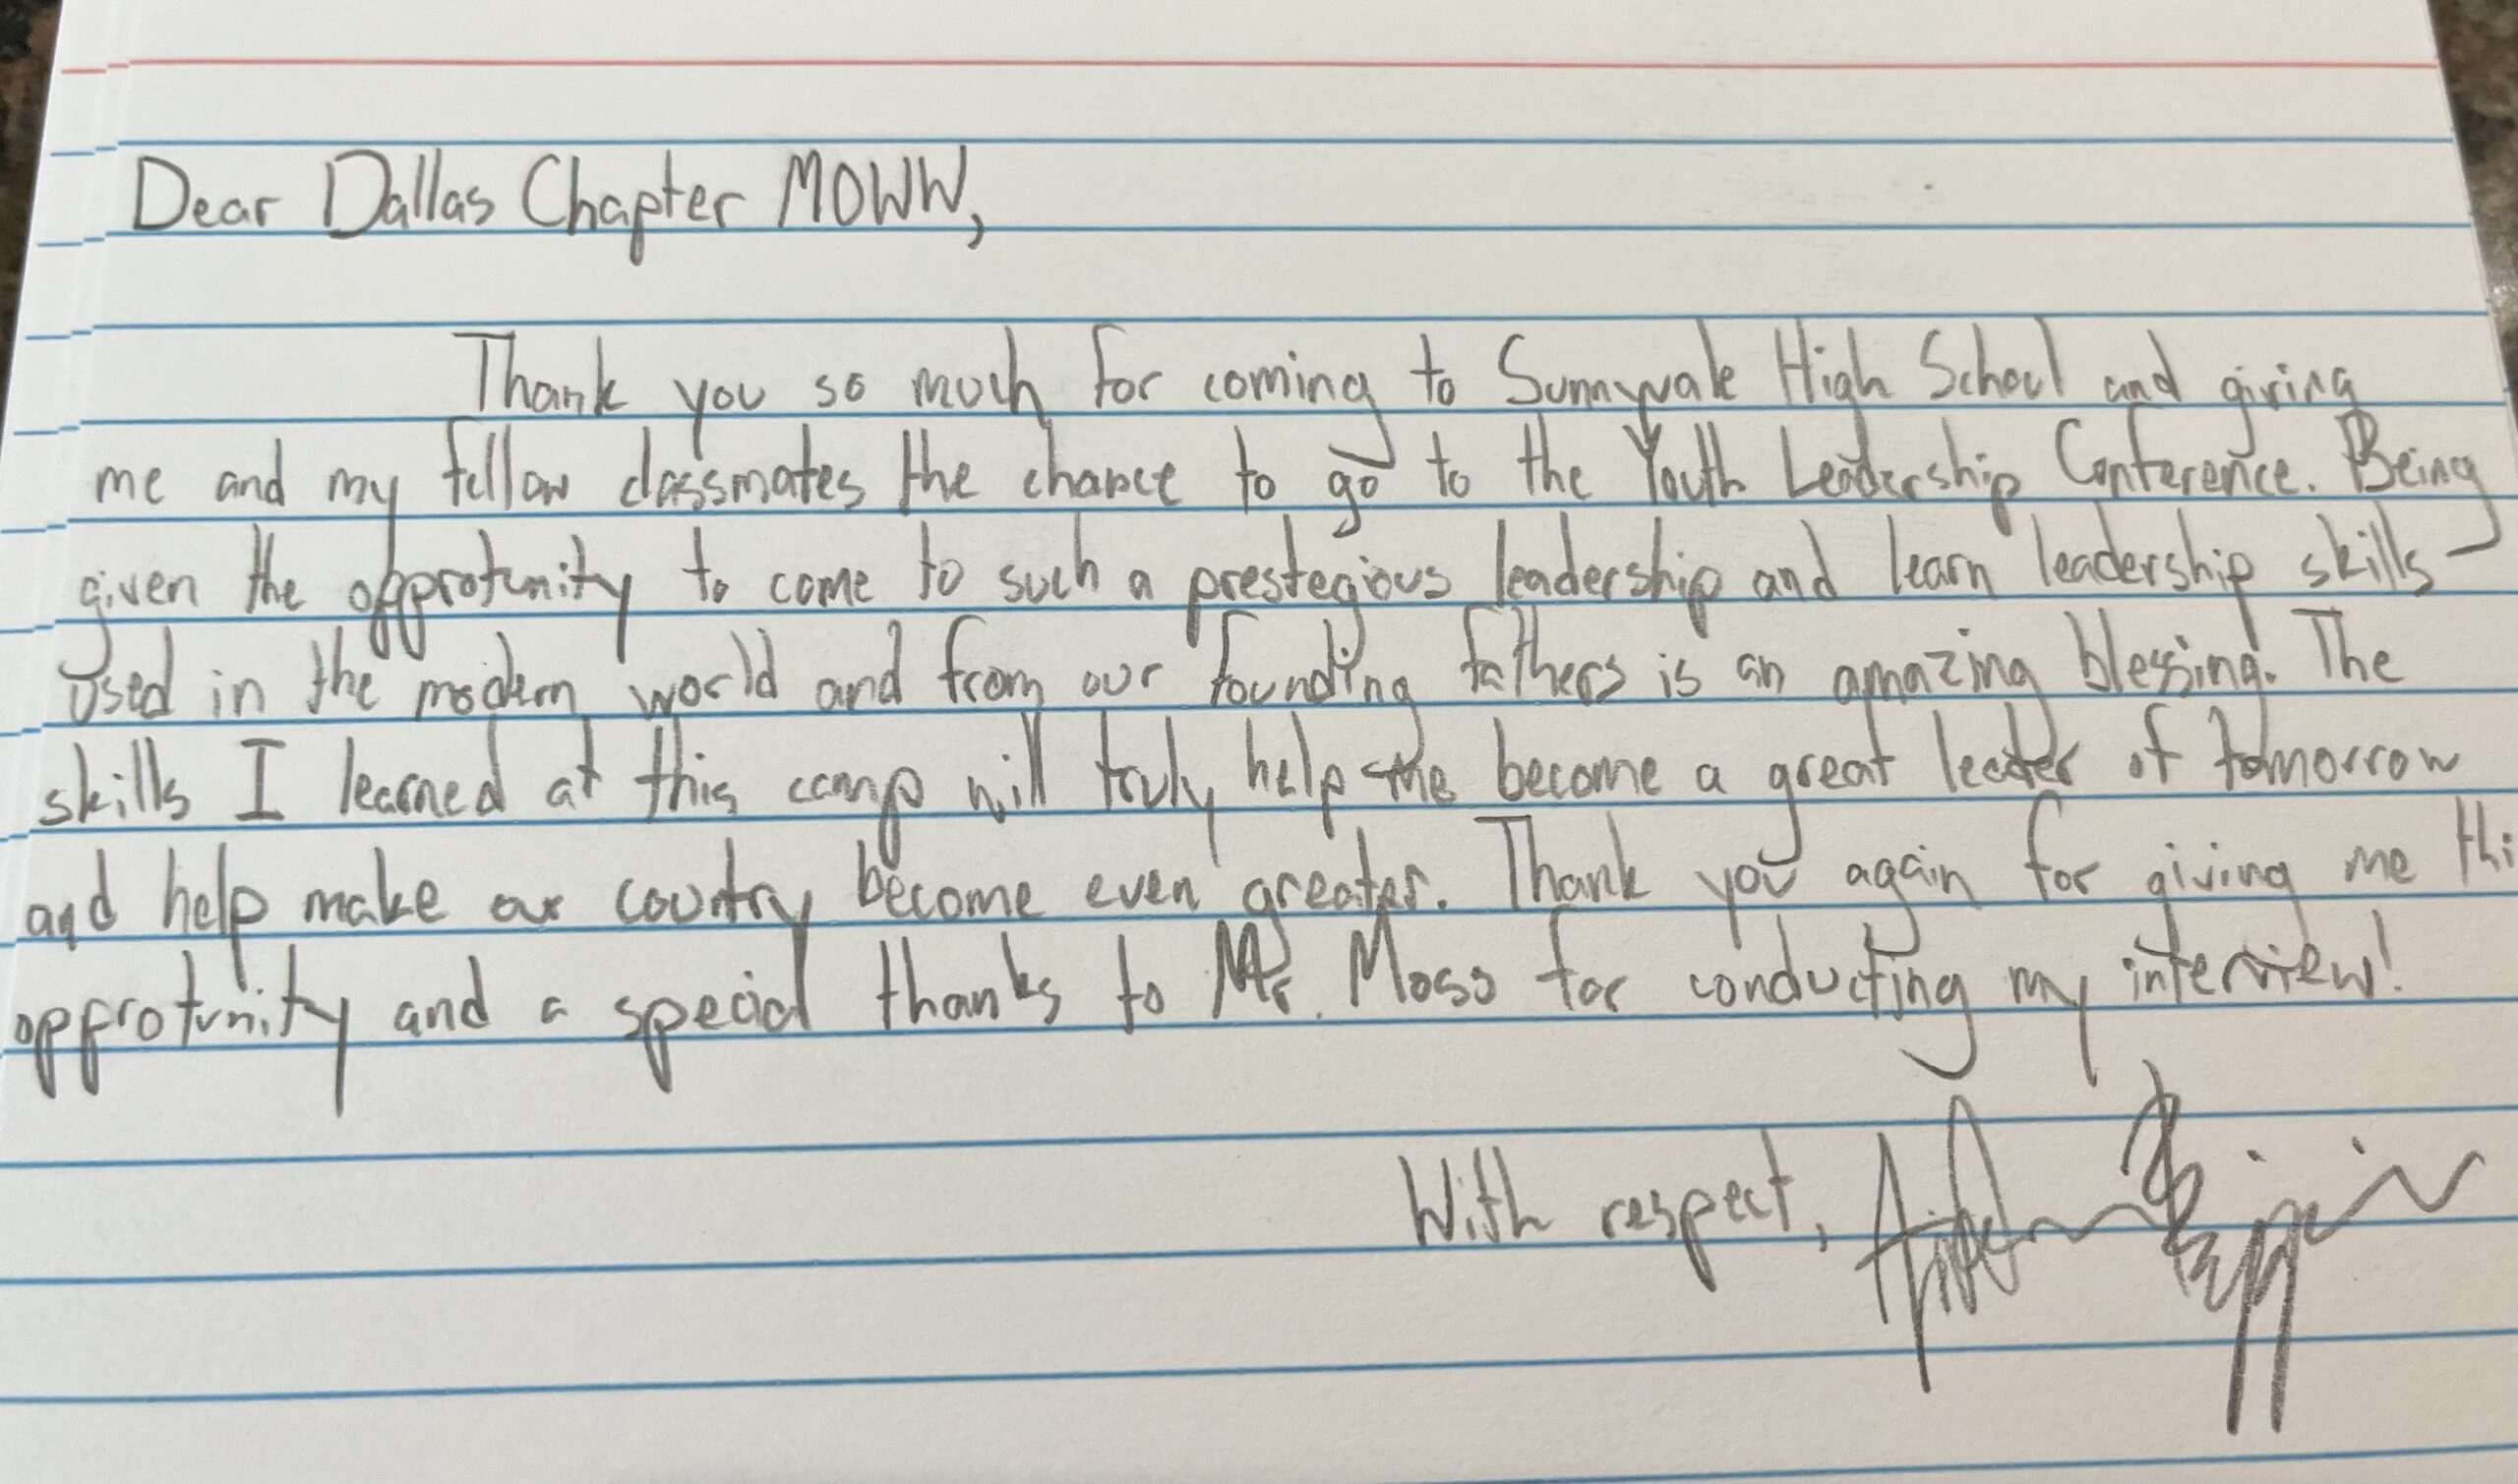 Dear Dallas Chapter MOWW,
Thank you so much for coming to Sunnyvale High School and giving
me and my fellow classmates the chance to go to the Youth Leadership Conference. Being
given the opprotunity to come to such a prestegious leadership and learn leadership skills
used in the modern world and from our founding fathers is an amazing blessing. The
skills I learned at this camp will truly help me become a great leader of tomorrow
and help make our country become even greater. Thank you again for giving me thi
opprotunity and a special thanks to Mr. Moss for conducting my interview!
With respect,